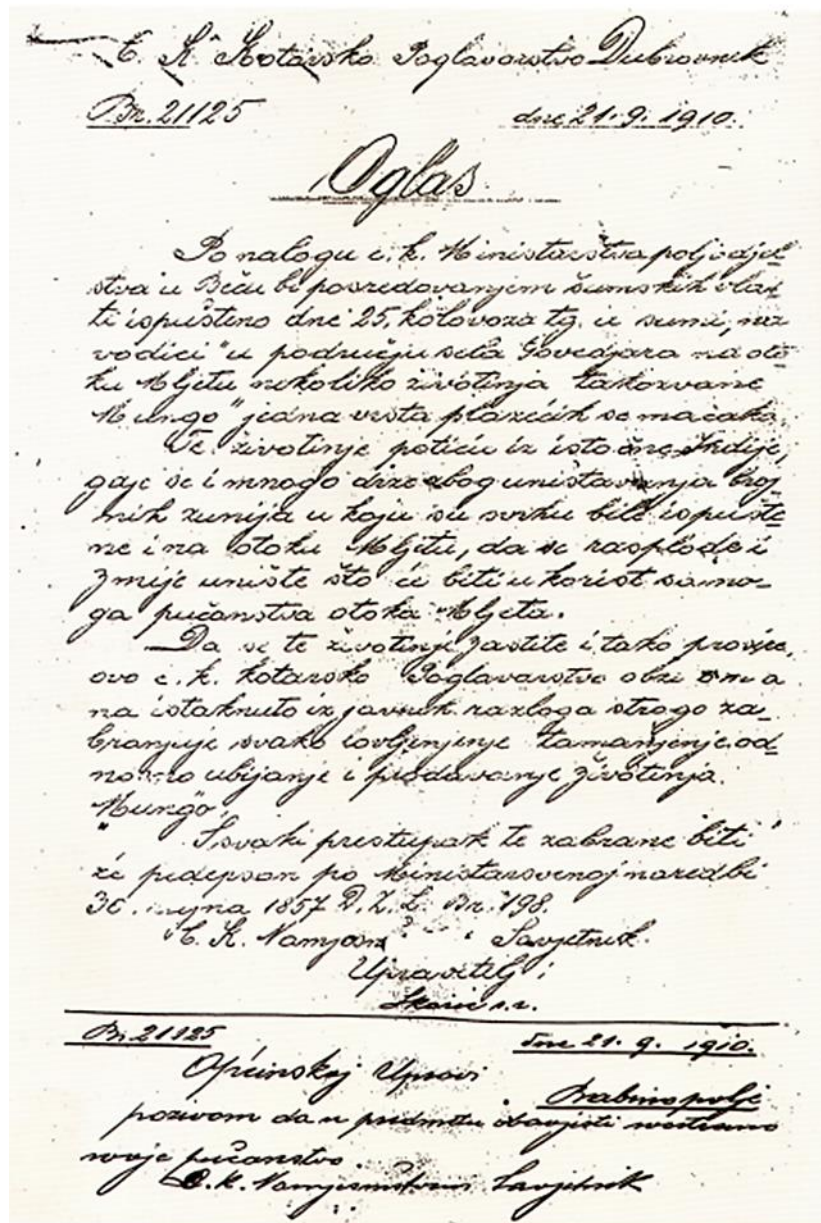 C. K. Kotarsko Poglavarstvo Dubrovnik
Br. 21125 dne 21. 9. 1910.
Oglas
Po nalogu c. k. Ministarstva poljodjel-
stva u Beču bi posredovanjem šumskih vlas-
ti ispušteno dne 25. kolovoza t.g. u šumi „na
vodici" u području sela Govedjara na oto-
ku Mljetu nekoliko životinja takozvane
Mungo" jedna vrsta plazećih se mačaka.
Te životinje potiču iz istočne Indije,
gaje se i mnogo drže zbog uništavanja broj-
nih zmija u koju su svrhu bile ispušte-
ne i na otoku Mljetu, da se rasplode i
zmije unište što će biti u korist samo-
ga pučanstva otoka Mljeta.
Da se te životinje zaštite i tako
ovo c. k. kotarsko Poglavarstvo obzirom a
na istaknuto iz javnih razloga strogo za-
branjuje svako lovljenjenje tamanjenje od-
nosno ubijanje i prodavanje životinja
„Mungo".
Svaki prestupak te zabrane biti
će pedepsan po Ministarstvenoj naredbi
30. rujna 1857 D. Z. L. Br. 198.
C. K. Namjesn Savjetnik
Upravitelj:
Br. 21125 dne 21. 9. 1910.
Općinskoj Upravi
Babinopolje
pozivom da u predmetu obavjesti
svoje pučanstvo.
C. K. Namjesnistveni Savjetnik